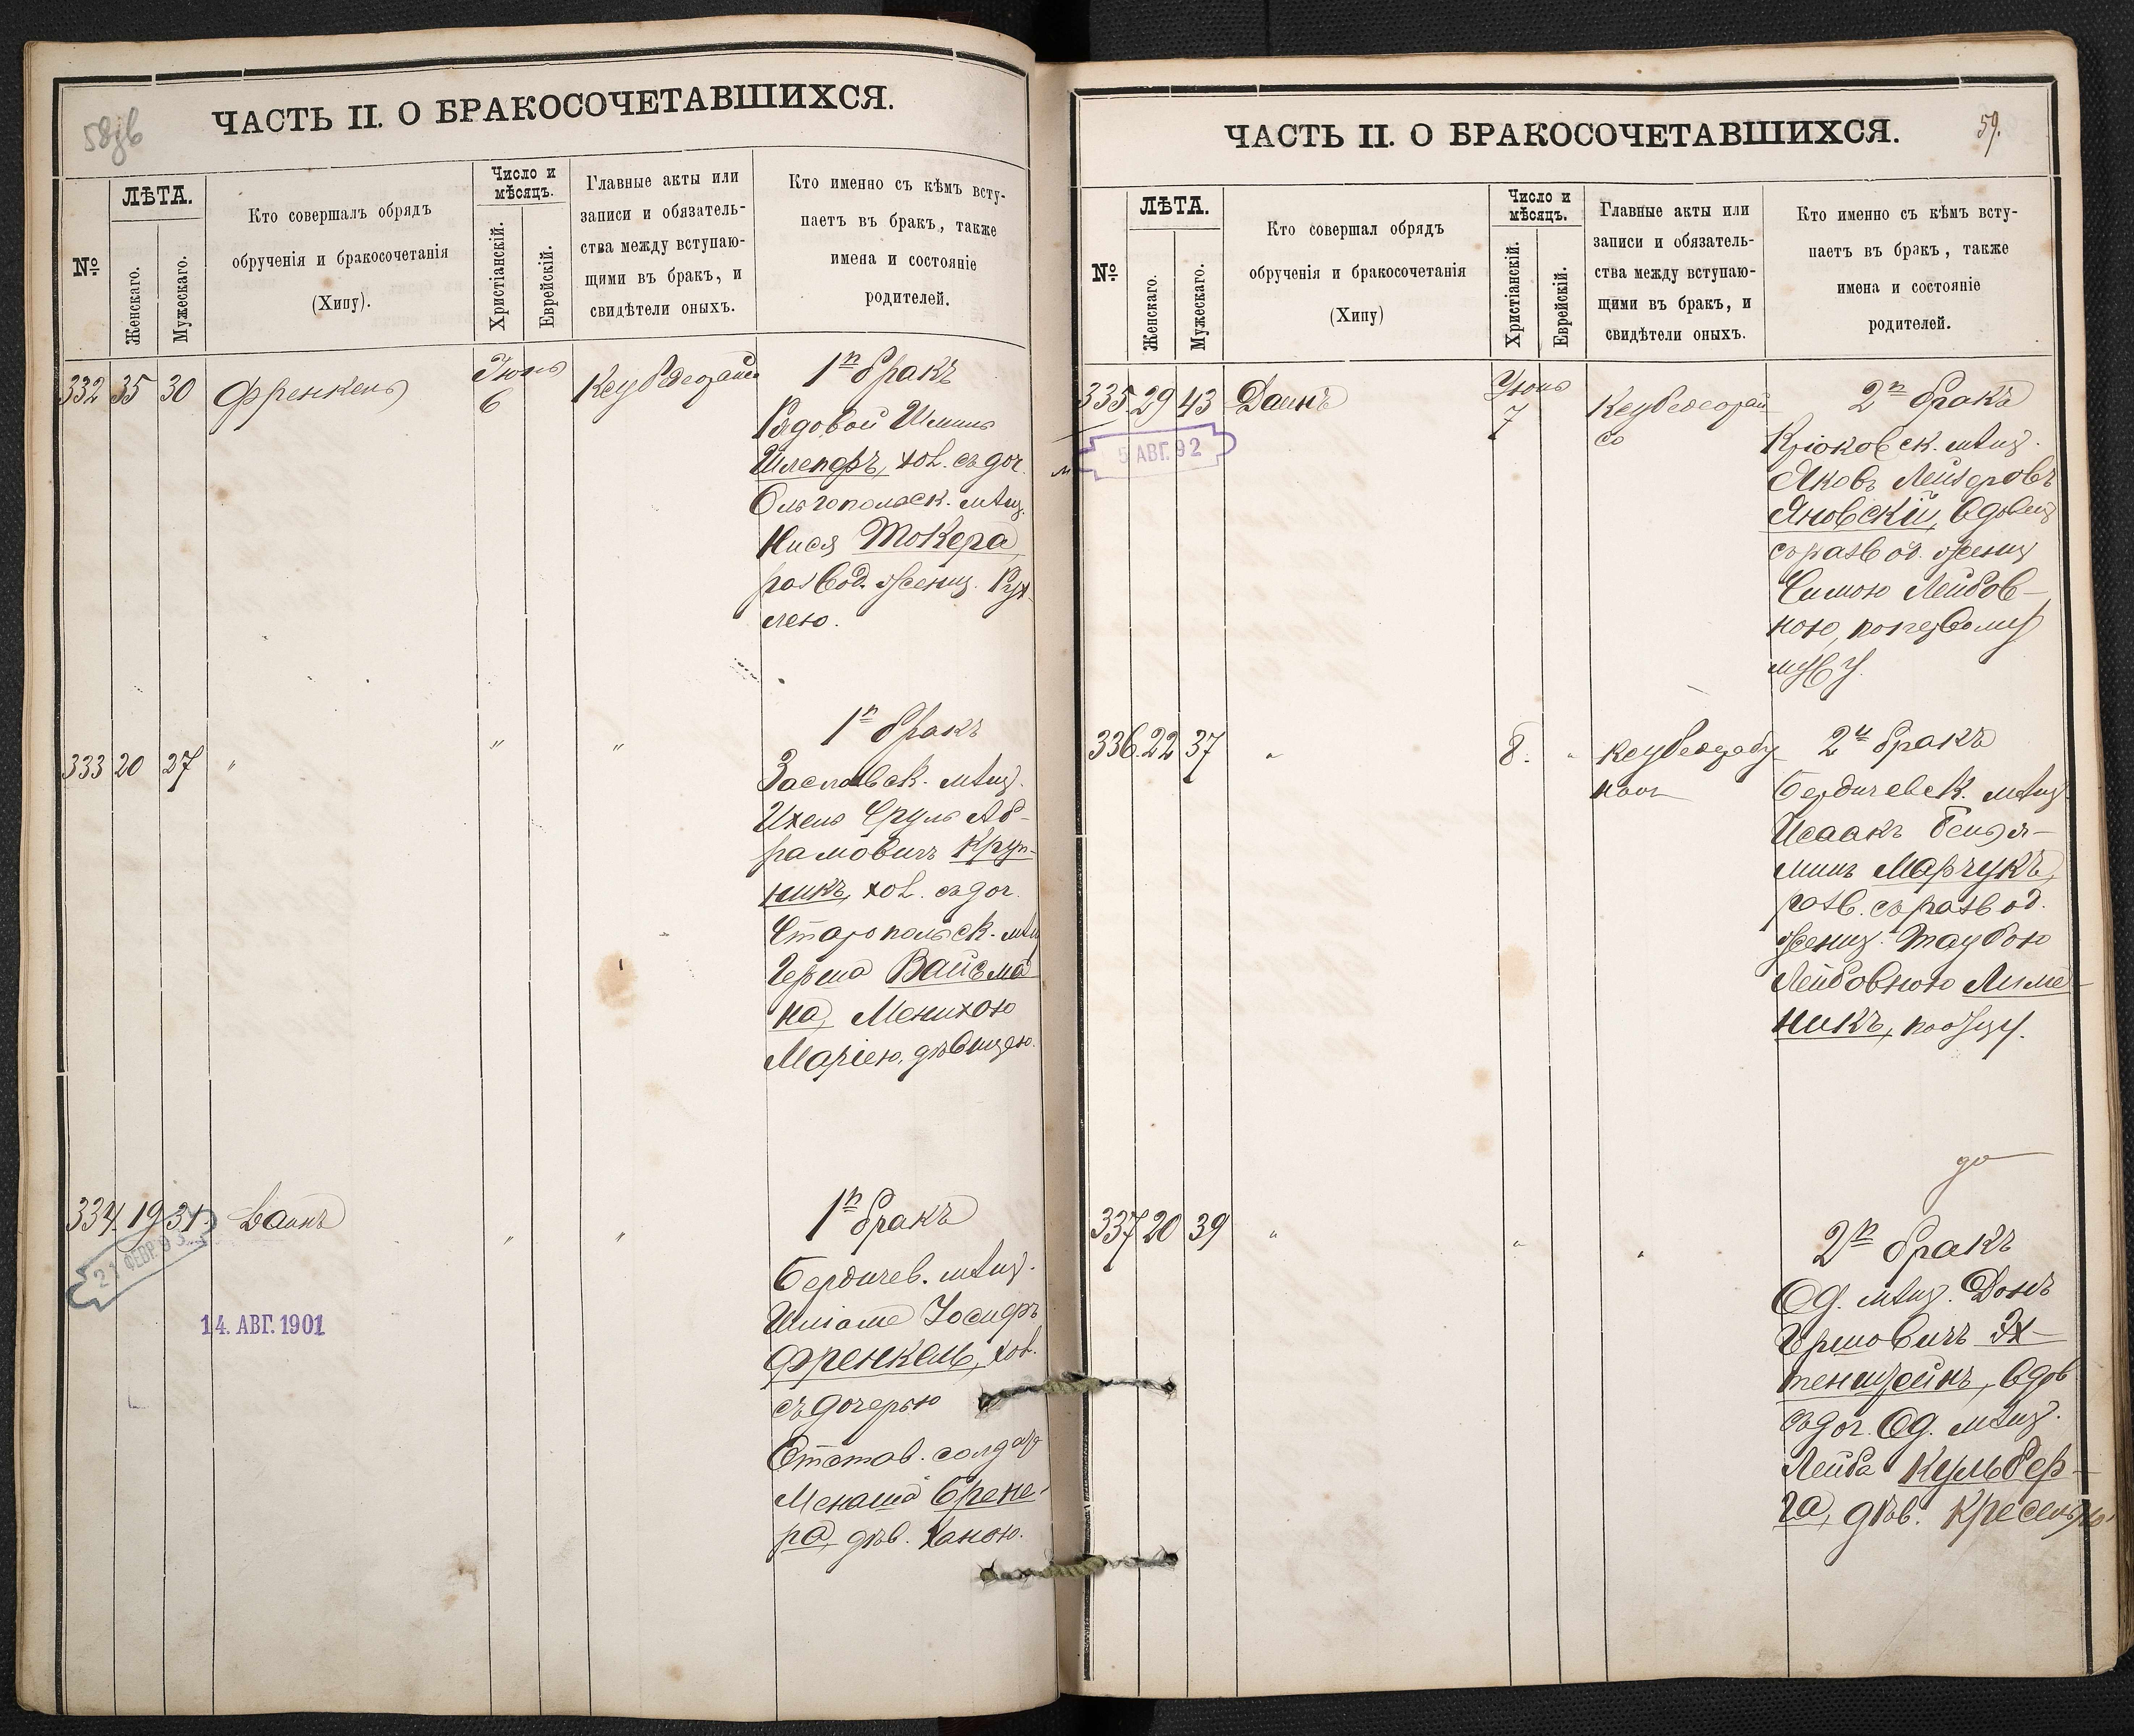 58об
ЧАСТЬ II. О БРАКОСОЧЕТАВШИХСЯ.
№
ЛѢТА.
Женскаго.
Мужескаго.
Кто совершалъ обрядъ
обрученія и бракосочетанія
(Хипу).
Число и
мѣсяцъ.
Христіанскій.
Еврейскій.
Главные акты или
записи и обязатель-
ства между вступаю-
щими въ бракъ, и
свидѣтели оныхъ.
Кто именно съ кѣмъ всту-
паетъ въ бракъ, также
имена и состояніе
родителей.
332 35 30 Френкель
Іюнь
6
1й бракъ
Рядовой
Шлепфъ, хол. съ доч.
Ольгопольск. мѣщ.
Нися Токера,
развод. женщ. Рух-
лею.
333 20 27 " " "
1й бракъ
Заславск. мѣщ.
Ихель Сруль Аб-
рамовичъ Круп-
никъ, хол. съ доч.
Старопольск. мѣщ
Герша Вайсма
на, Менихою
Маріею, дѣвицею.
334. 19 31. Даинъ " "
21 ФЕВР. 93
14. АВГ. 1901
1й бракъ
Бердичев. мѣщ.
Іосифъ
Френкель, хол.
съ дочерью
Отстав. солдат
Менаша Брене-
ра, дѣв. Ханою.
59.
ЧАСТЬ II. О БРАКОСОЧЕТАВШИХСЯ.
№
ЛѢТА.
Женскаго.
Мужескаго.
Кто совершал обрядъ
обрученія и бракосочетанія
(Хипу)
Число и
мѣсяцъ.
Христіанскій.
Еврейскій.
Главные акты или
записи и обязатель-
ства между вступаю-
щими въ бракъ, и
свидѣтели оныхъ.
Кто именно съ кѣмъ всту-
паетъ въ бракъ, также
имена и состояніе
родителей.
335. 29 43 Даинъ
Іюнь
7
5 АВГ. 92
2й бракъ
Крюковск. мѣщ.
Яковъ Лейзеровъ
Яновскій, вдовец
съ развод. женщ
Симою Лейбов-
ною,
мужу.
336. 22 37 " 8. "
2й бракъ
Бердичевск. мѣщ
Исаакъ Бенья-
минъ Марчукъ,
разв. съ развод.
женщ. Таубою
Лейбовною Лиме-
никъ, по отцу.
337 20 39 " " "
2й бракъ
Од. мѣщ. Донъ
Гершовичъ Эх-
тенштейнъ, вдов
съ доч. Од. мѣщ.
Лейба Кульбер-
га, дѣв.